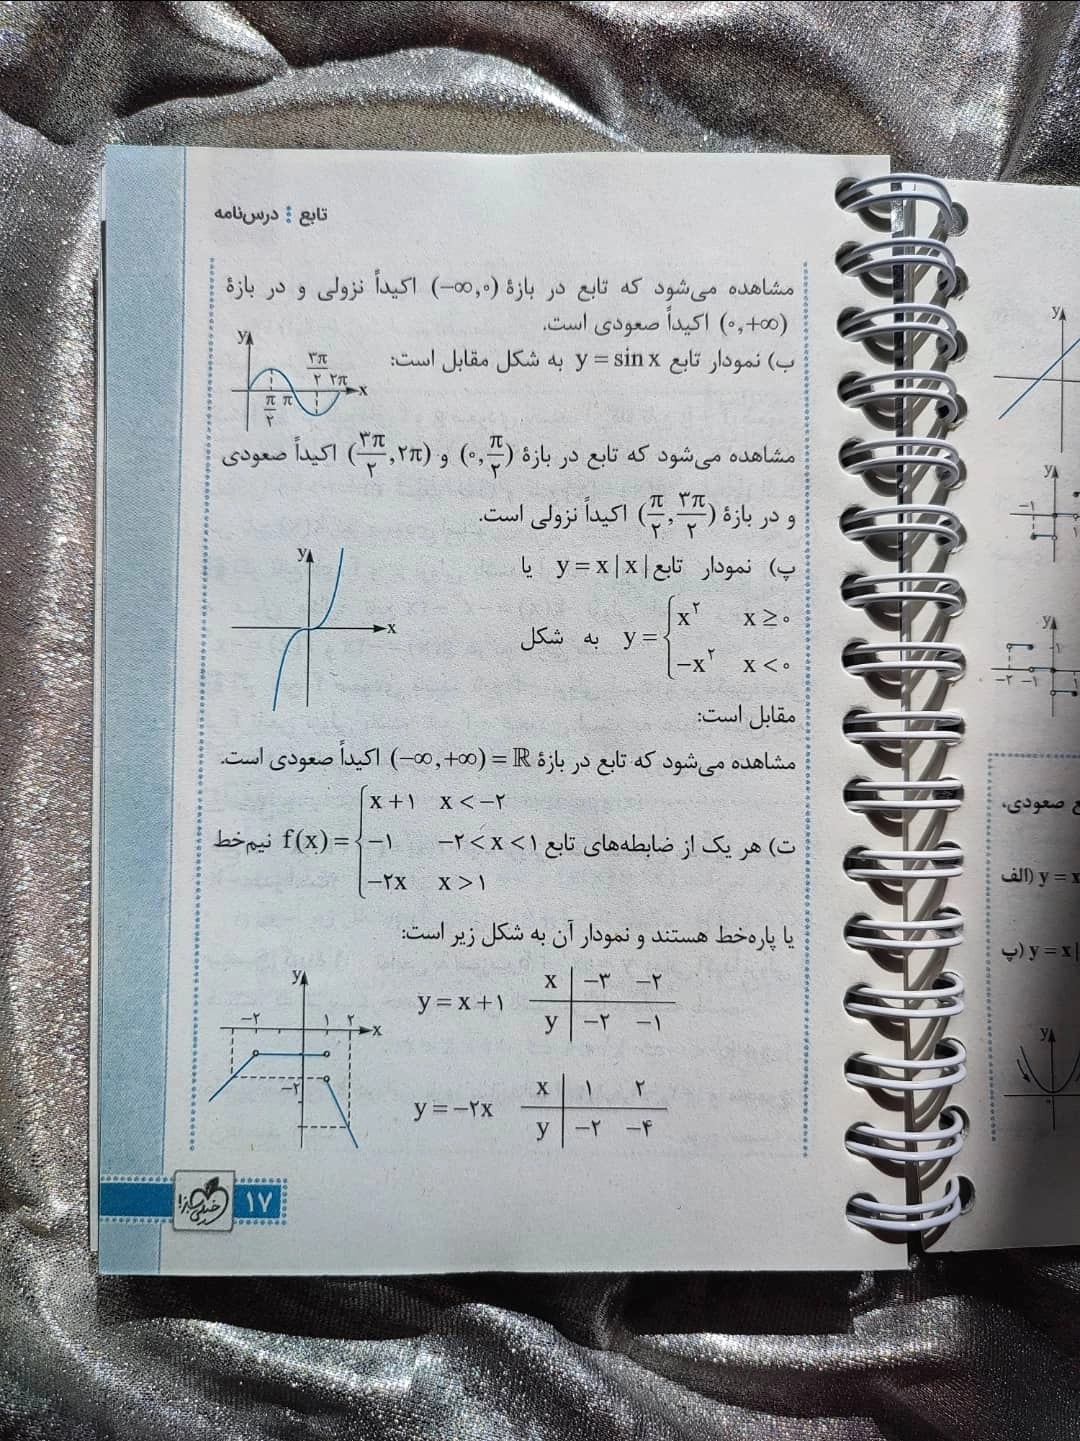 تابع درس‌نامه
مشاهده می‌شود که تابع در بازهٔ (−∞,۰) اکیداً نزولی و در بازهٔ
(۰,+∞) اکیداً صعودی است.
ب) نمودار تابع y = sin x به شکل مقابل است:
y
۳π/۲
۲π
x
π/۲
π
مشاهده می‌شود که تابع در بازهٔ (۰,π/۲) و (۳π/۲,۲π) اکیداً صعودی
و در بازهٔ (π/۲,۳π/۲) اکیداً نزولی است.
پ) نمودار تابع y = x|x| یا
y = { x^۲ x ≥ ۰
−x^۲ x < ۰
به شکل
مقابل است:
y
x
مشاهده می‌شود که تابع در بازهٔ (−∞,+∞) = ℝ اکیداً صعودی است.
ت) هر یک از ضابطه‌های تابع f(x) = { x+۱ x < −۲
−۱ −۲ < x < ۱
−۲x x > ۱
نیم‌خط
یا پاره‌خط هستند و نمودار آن به شکل زیر است:
y = x + ۱
x −۳ −۲
y −۲ −۱
y = −۲x
x ۱ ۲
y −۲ −۴
y
−۲ ۱ ۲ x
−۲
خیلی سبز
۱۷
y
y
−۱
۱
y
۱
−۲ −۱
۱
ع صعودی،
الف) y = x
پ) y = x|
y